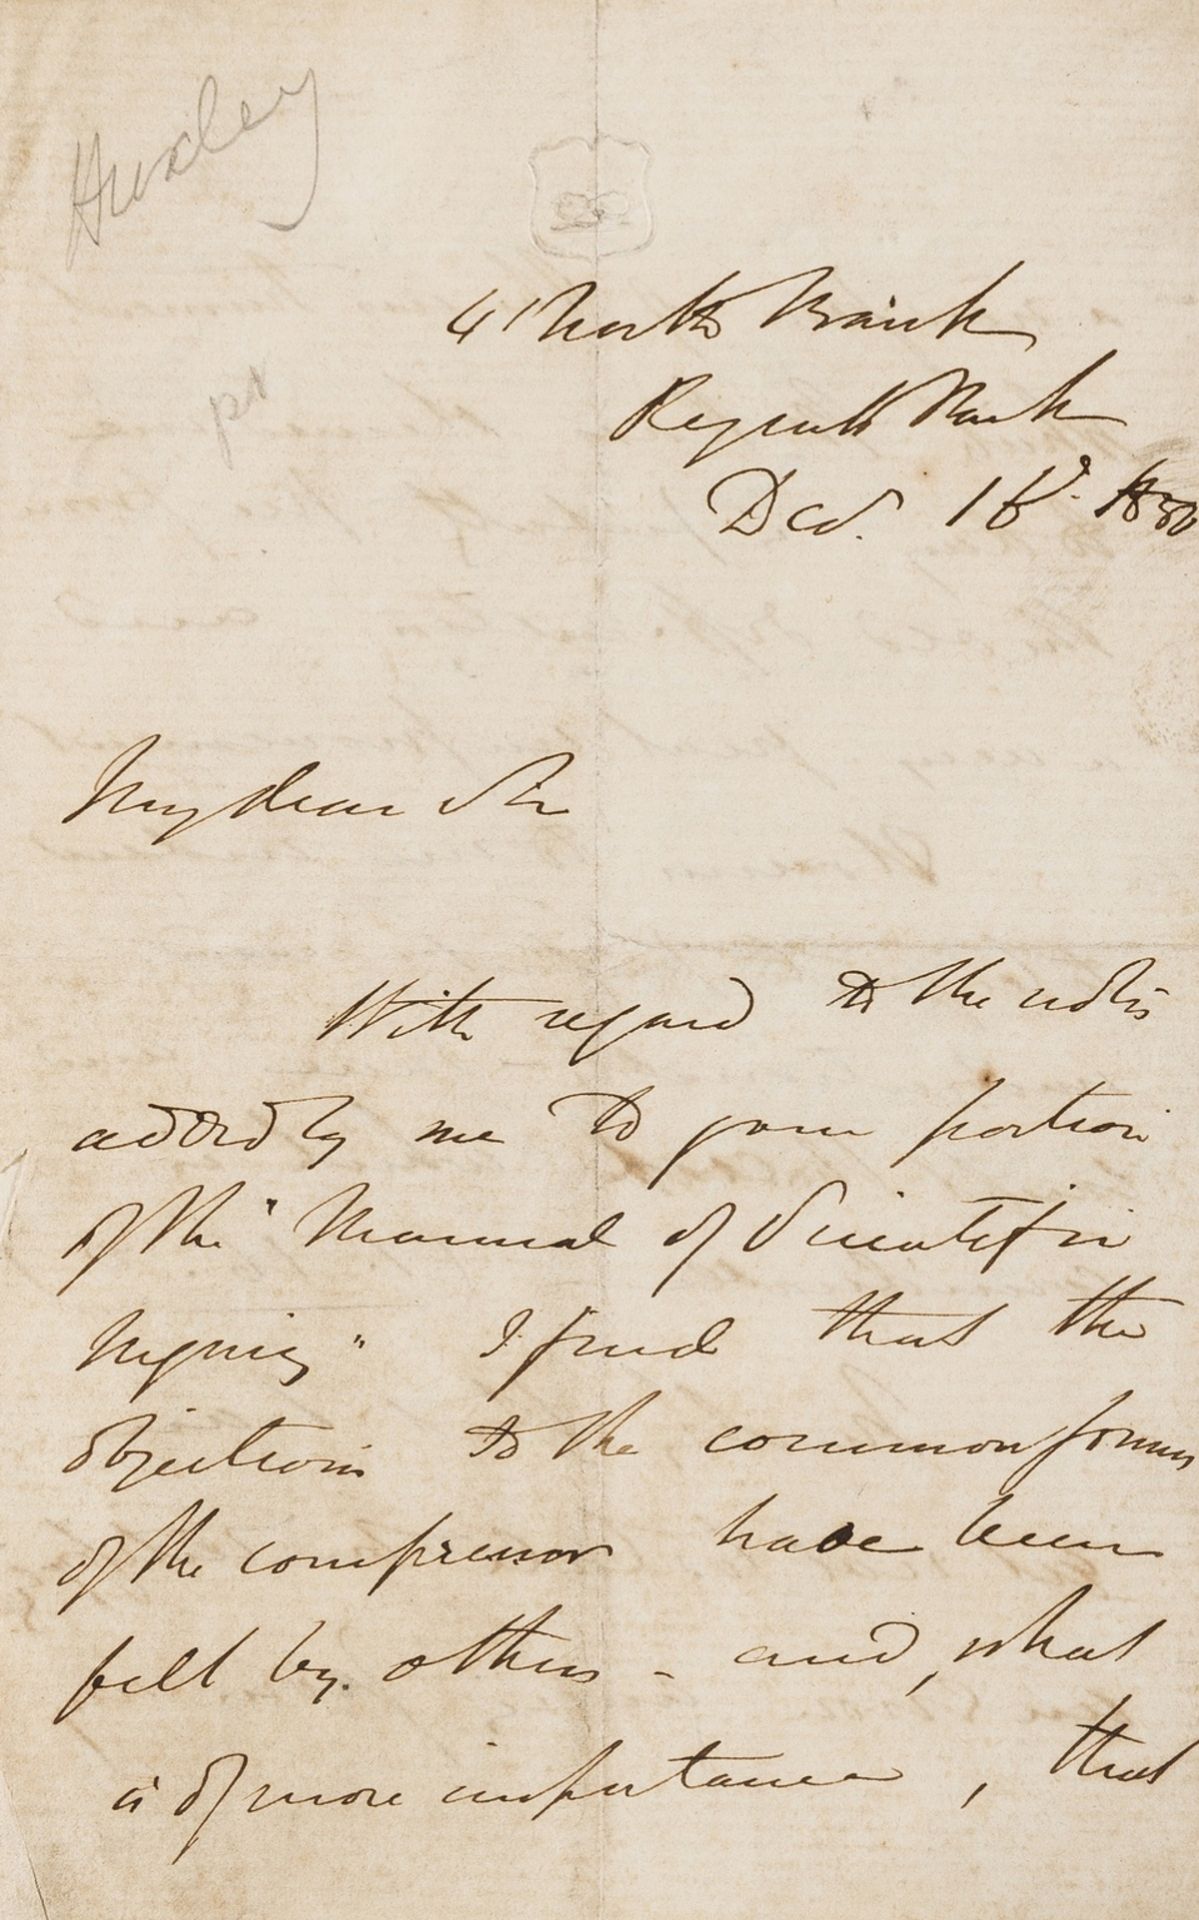 Huxley
41 North Bank
Regents Park
Decr. 1850
My dear Sir
With regard to the notes
added by me to your portion
of the "Manual of Scientific
Inquiry" I find that the
objections to the common forms
of the compressor have been
felt by others - and, what
is of more importance, that